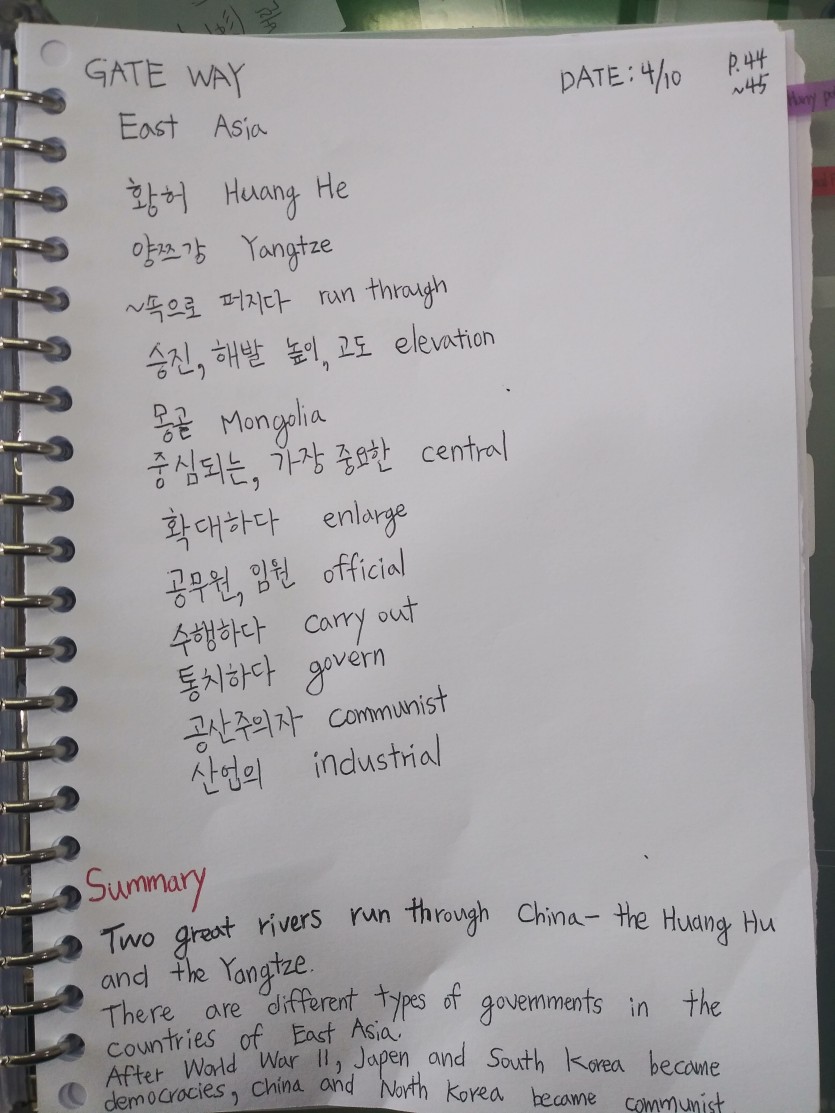 GATE WAY DATE: 4/10 P.44
~45
East Asia
황허 Huang He
양쯔강 Yangtze
~속으로 퍼지다 run through
승진, 해발 높이, 고도 elevation
몽골 Mongolia
중심되는, 가장 중요한 central
확대하다 enlarge
공무원, 임원 official
수행하다 carry out
통치하다 govern
공산주의자 communist
산업의 industrial
Summary
Two great rivers run through China- the Huang Hu
and the Yangtze.
There are different types of governments in the
countries of East Asia.
After World War II, Japen and South Korea became
democracies, China and North Korea became communist